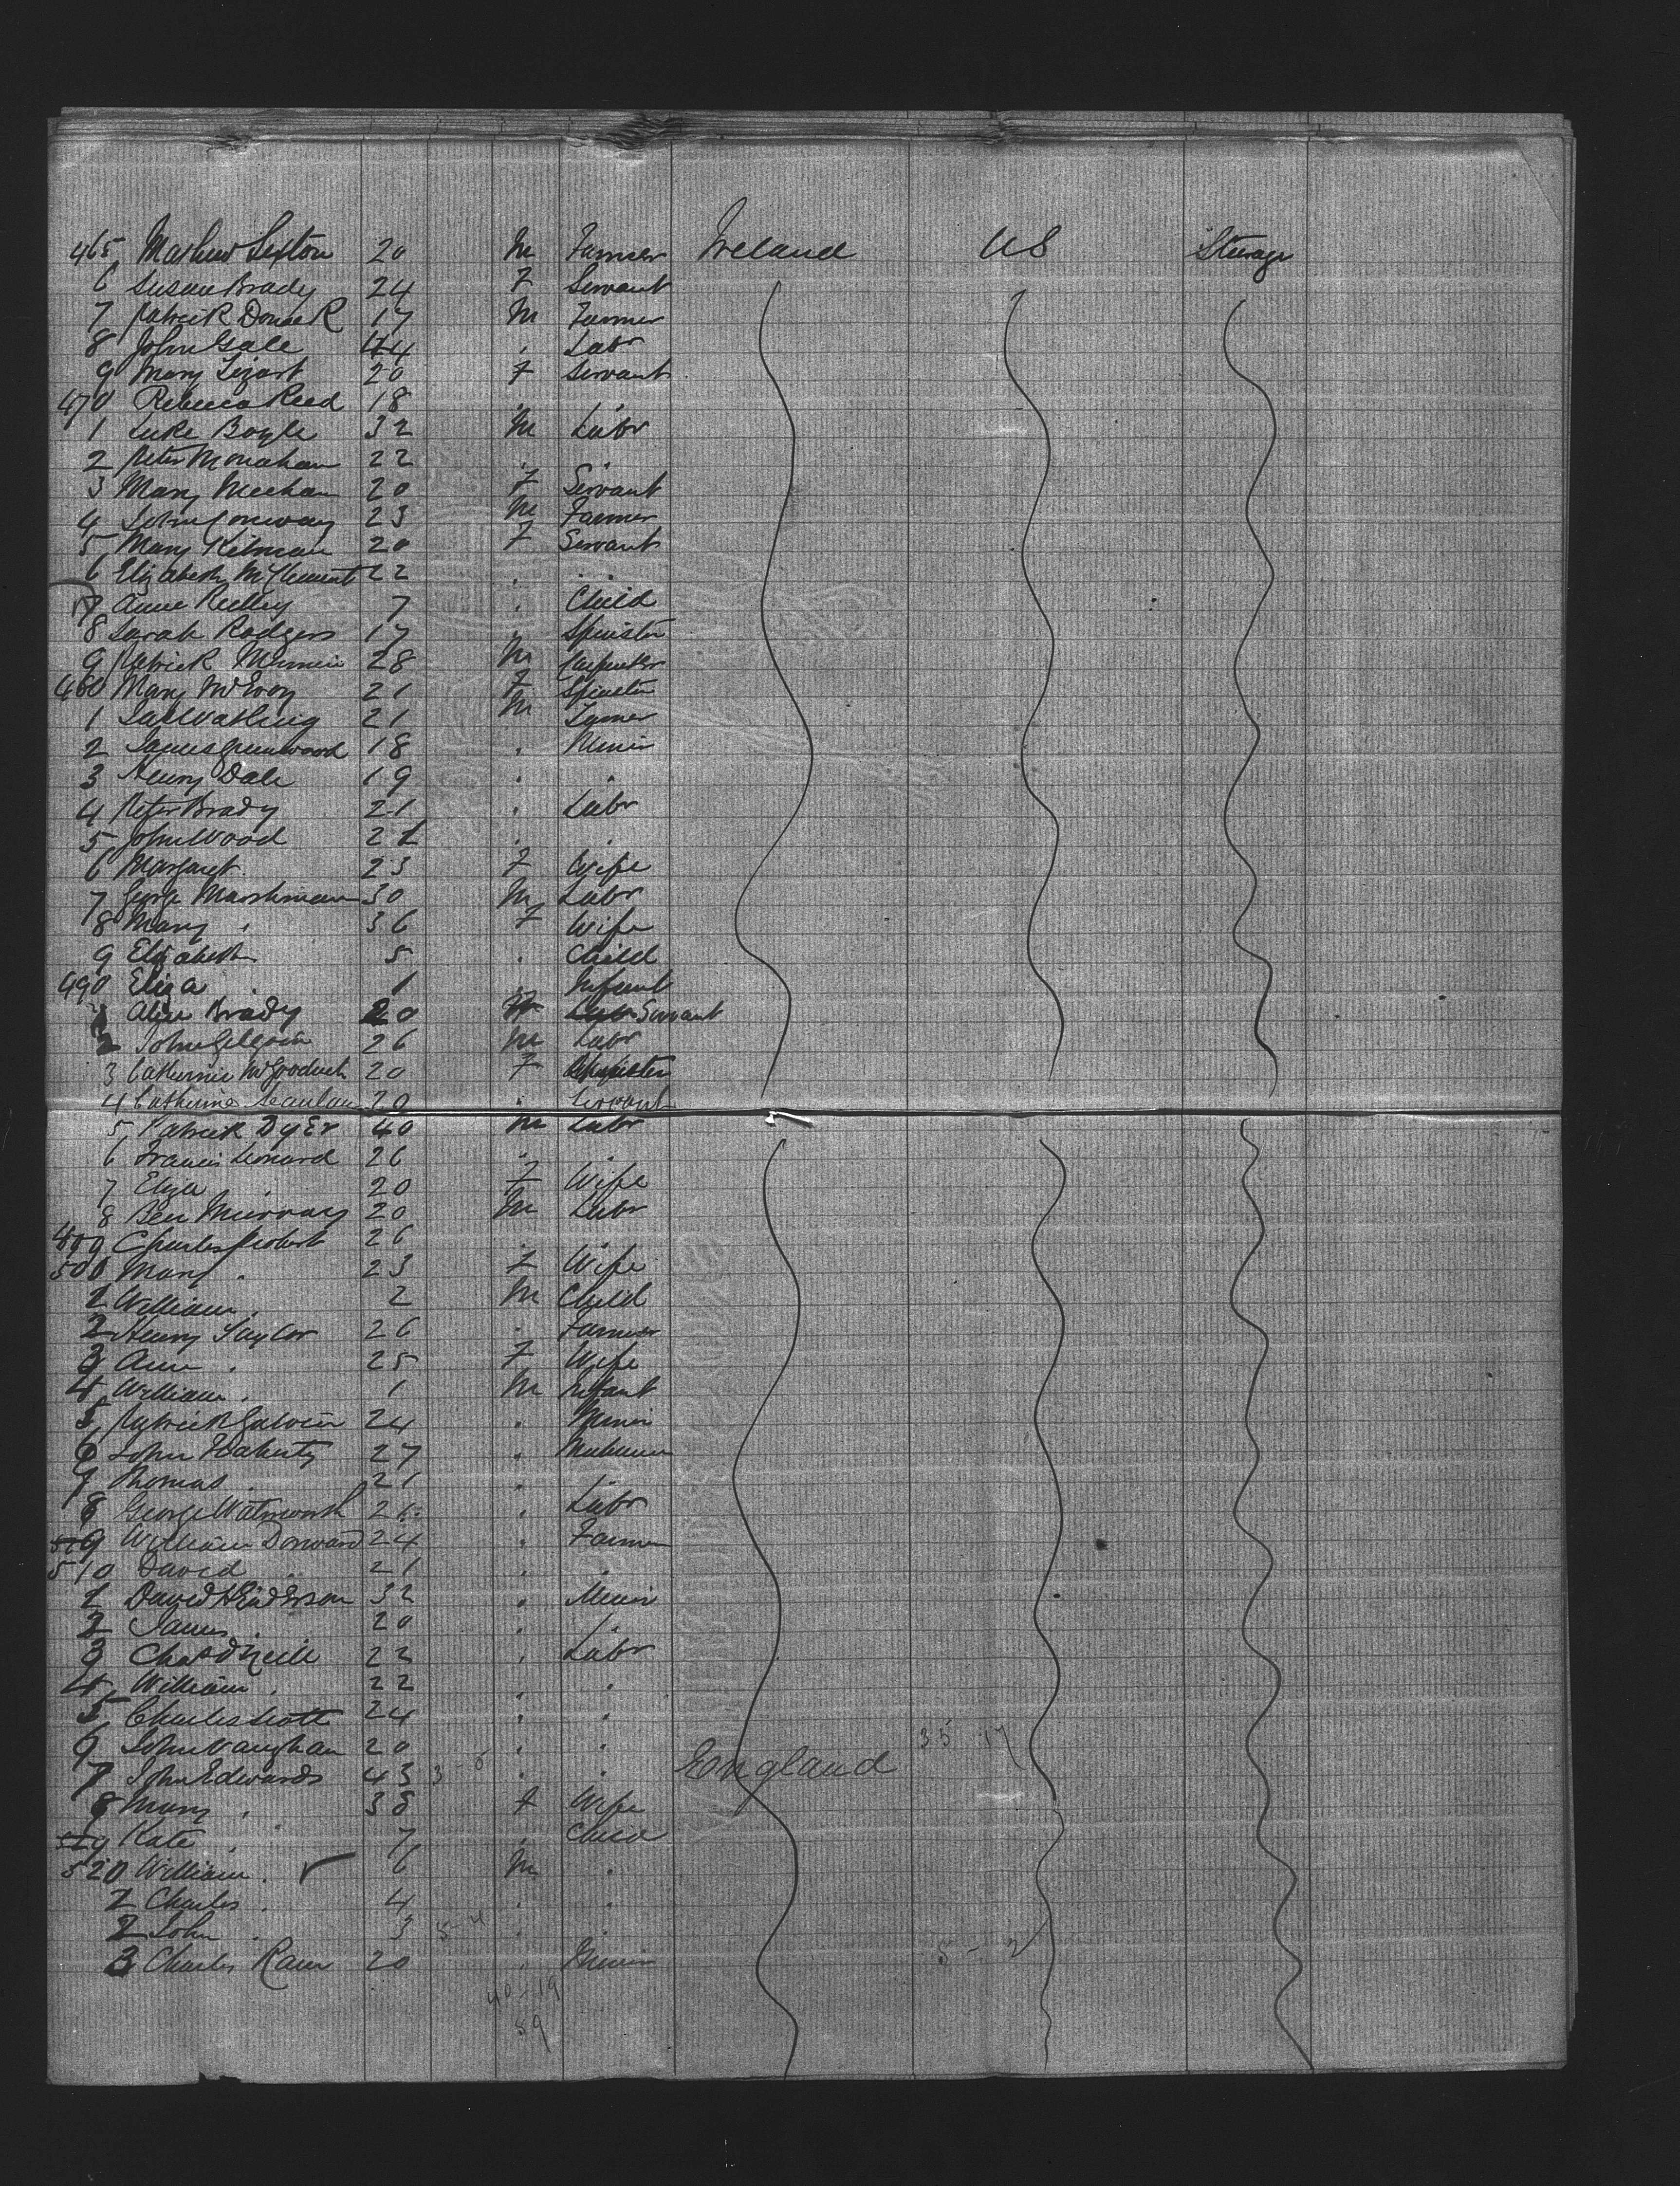 465 Mathew Sexton 20 M Farmer Ireland US Steerage
6 Susan Brady 24 F Servant
7 Patrick 17 M Farmer
8 John Gale 44 " Labr
9 Mary 20 F Servant
470 Rebecca Reed 18 " "
1 Luke Boyle 32 M Labr
2 Peter Monahan 22 " "
3 Mary Meehan 20 F Servant
4 John Conway 23 M Farmer
5 Mary 20 F Servant
6 Elizabeth 22 " "
7 Anne Reilley 7 " Child
8 Sarah Rodgers 17 " Spinster
9 Patrick 28 M Carpenter
480 Mary McEvoy 21 F Spinster
1 21 M
2 James Greenwood 18 " Miner
3 Henry Dale 19 " "
4 Peter Brady 21 " Labr
5 John Wood 22 " "
6 Margaret " 23 F Wife
7 George Marshman 30 M Labr
8 Mary " 36 F Wife
9 Elizabeth 5 " Child
490 Eliza " 1 " Infant
1 Alice Brady 20 F Servant
2 John 26 M Labr
3 Catherine 20 F Spinster
4 Catherine Scanlan 20 " Servant
5 Patrick DyEr 40 M Labr
6 Francis Leonard 26 " "
7 Eliza " 20 F Wife
8 Ben Murray 20 M Labr
499 Charles 26 " "
500 Mary " 23 F Wife
1 William " 2 M Child
2 Henry Taylor 26 " Farmer
3 Ann " 25 F Wife
4 William " 1 M Infant
5 Patrick Galvin 24 " Miner
6 John Flaherty 27 "
7 Thomas " 21 "
8 George 26 " Labr
9 William Dorward 24 " Farmer
510 David " 21 " "
1 David HEndErson 32 " Miner
2 James " 20 "
3 Chas O'Neill 22 " Labr
4 William " 22 " "
5 Charles Scott 24 " "
6 John Vaughan 20 " " 35 - 17
7 John Edwards 43 " " England
8 Mary " 38 F Wife
519 Kate " 7 " Child
520 William " 6 M "
Charles " 4 " "
2 John " 3 " "
3 Charles 20 " Miner 5 - 2
40 - 19
89